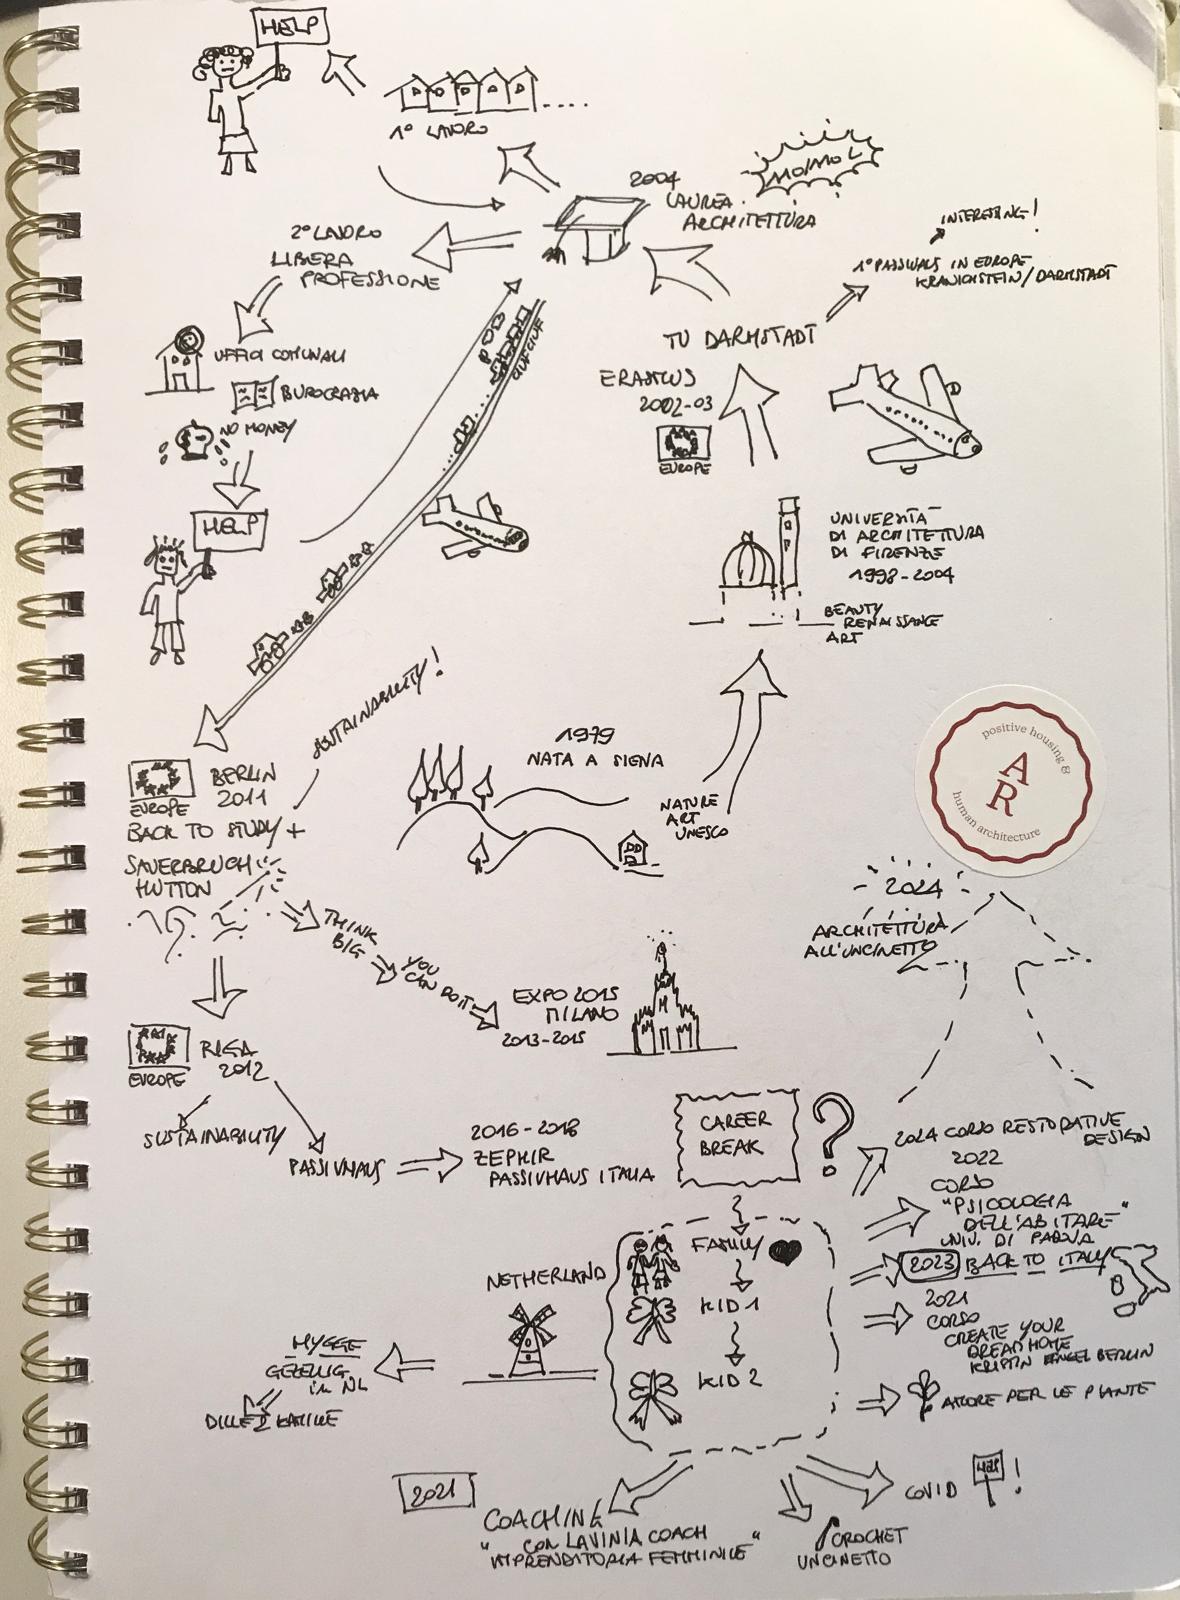 HELP
1° LAVORO
2004
LAUREA
ARCHITETTURA
2° LAVORO
LIBERA
PROFESSIONE
INTERESSING!
1° PASSIVHAUS IN EUROPE
KRANICHSTEIN/DARMSTADT
TU DARMSTADT
ERASMUS
2002-03
EUROPE
UFFICI COMUNALI
BUROCRAZIA
NO MONEY
HELP
CIUFCIUF
UNIVERSITÀ
DI ARCHITETTURA
DI FIRENZE
1998-2004
BEAUTY
RENAISSANCE
ART
SUSTAINABILITY!
1979
NATA A SIENA
NATURE
ART
UNESCO
positive housing &
AR
human architecture
EUROPE
BERLIN
2011
BACK TO STUDY +
SAUERBRUCH
HUTTON
THINK
BIG
YOU
CAN DO IT
EXPO 2015
MILANO
2013-2015
2024
ARCHITETTURA
ALL'UNCINETTO
EUROPE
RIGA
2012
SUSTAINABILITY
PASSIVHAUS
2016-2018
ZEPHIR
PASSIVHAUS ITALIA
CAREER
BREAK
?
2024 CORSO RESTORATIVE
DESIGN
2022
CORSO
"PSICOLOGIA
DELL'ABITARE"
UNIV. DI PADOVA
2023 BACK TO ITALY
2021
CORSO
CREATE YOUR
DREAM HOME
KRISTIN ENGEL BERLIN
AMORE PER LE PIANTE
FAMILY
KID 1
KID 2
NETHERLAND
HYGGE
GEZELLIG
in NL
DILLE & KAMILLE
2021
COACHING
"CON LAVINIA COACH
IMPRENDITORIA FEMMINILE"
CROCHET
UNCINETTO
COVID
HELP
!